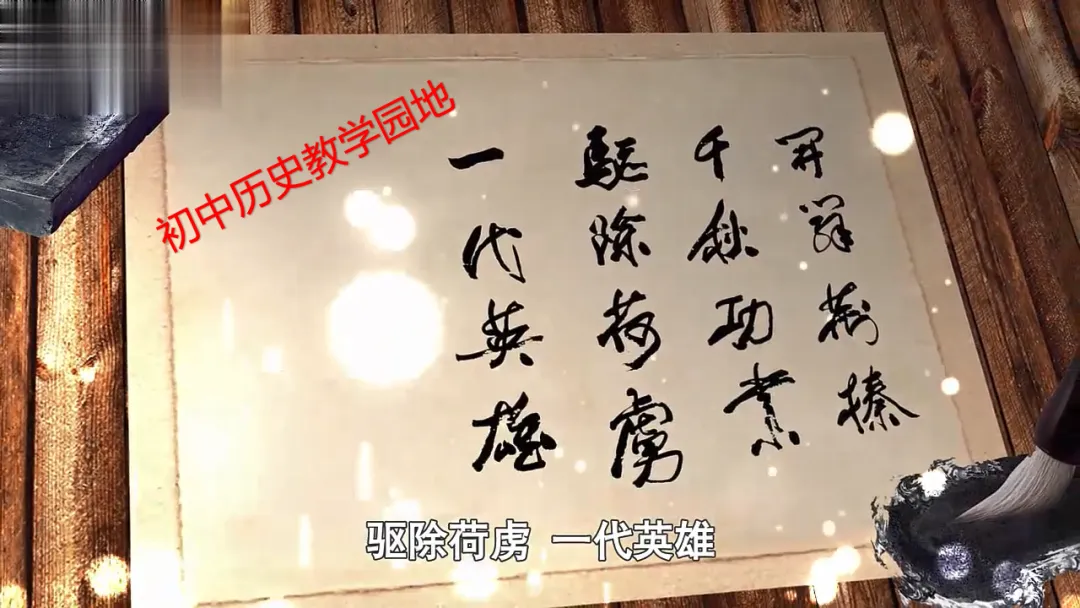 初中历史教学园地
開辟荆榛
千秋功業
驅除荷虜
一代英雄
驱除荷虏 一代英雄